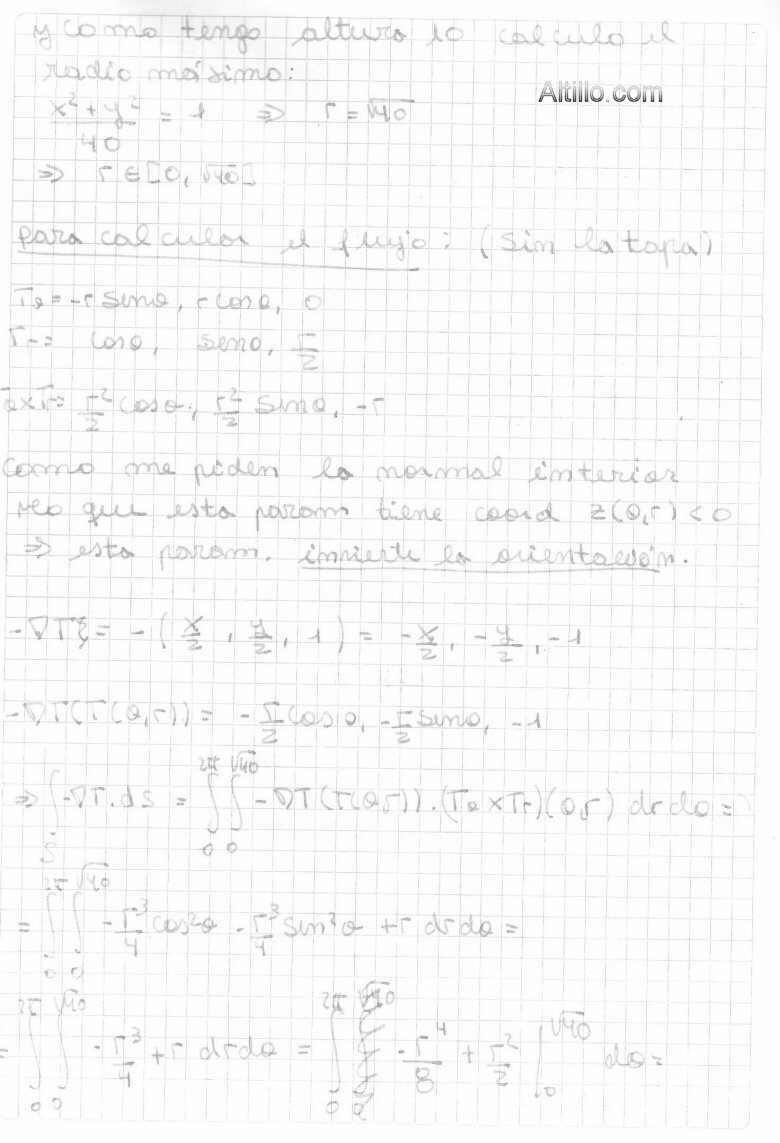 y como tengo altura 10 calculo el
radio máximo:
Altillo.com
(x² + y²)/40 = 1 ⇒ r = √40
⇒ r ∈ [0, √40]
para calcular el flujo: (sin la tapa)
Tθ = -r senθ, r cosθ, 0
Tr = cosθ, senθ, r/2
θ×Tr = r²/2 cosθ, r²/2 sinθ, -r
como me piden la normal interior
veo que esta param tiene coord z(θ,r) < 0
⇒ esta param. invierte la orientación.
-∇T = -(x/2, y/2, 1) = -x/2, -y/2, -1
-∇T(T(θ,r)) = -r/2 cosθ, -r/2 sinθ, -1
⇒ ∫_S -∇T.ds = ∫₀^2π ∫₀^√40 -∇T(T(θ,r)).(Tθ×Tr)(θ,r) dr dθ =
= ∫₀^2π ∫₀^√40 -r³/4 cos²θ - r³/4 sin²θ + r dr dθ =
= ∫₀^2π ∫₀^√40 -r³/4 + r dr dθ = ∫₀^2π -r⁴/8 + r²/2 |₀^√40 dθ =